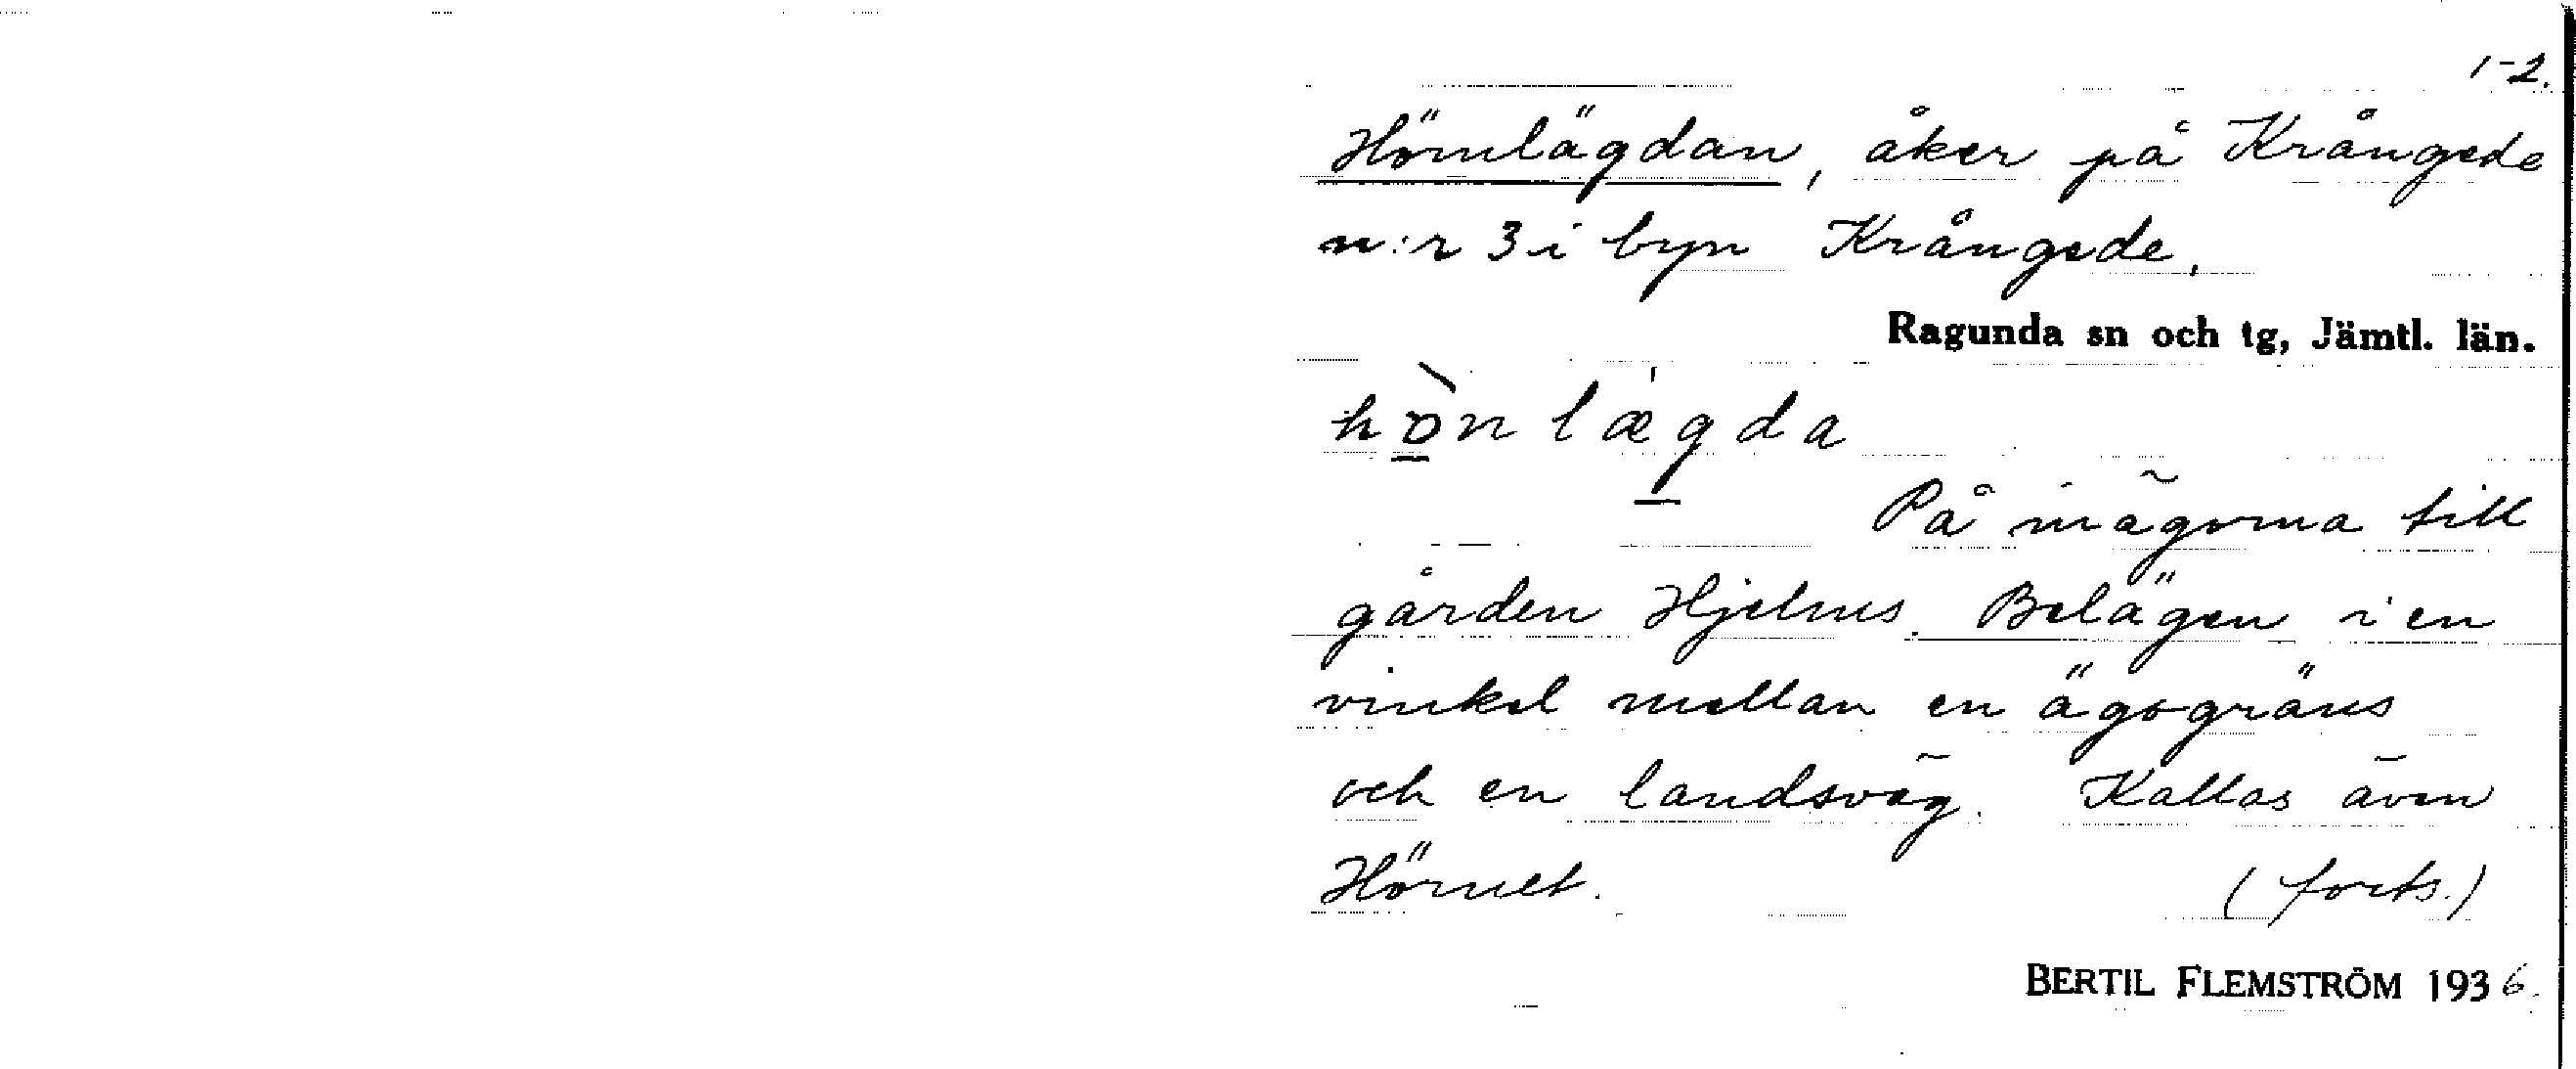 1-2.
Hörnlägdan, åker på Krångede
n:r 3 i byn Krångede.
Ragunda sn och tg, Jämtl. län.
hònlægda
På inägorna till
gården Hjelms. Belägen i en
vinkel mellan en ägogräns
och en landsväg. Kallas även
Hörnet. (forts.)
BERTIL FLEMSTRÖM 1936.